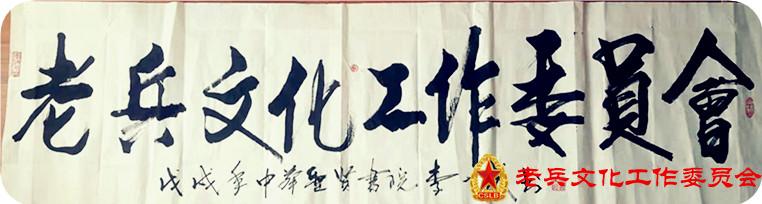 老兵文化工作委員會
戊戌年中華聖賢書院李
CSLB
老兵文化工作委员会